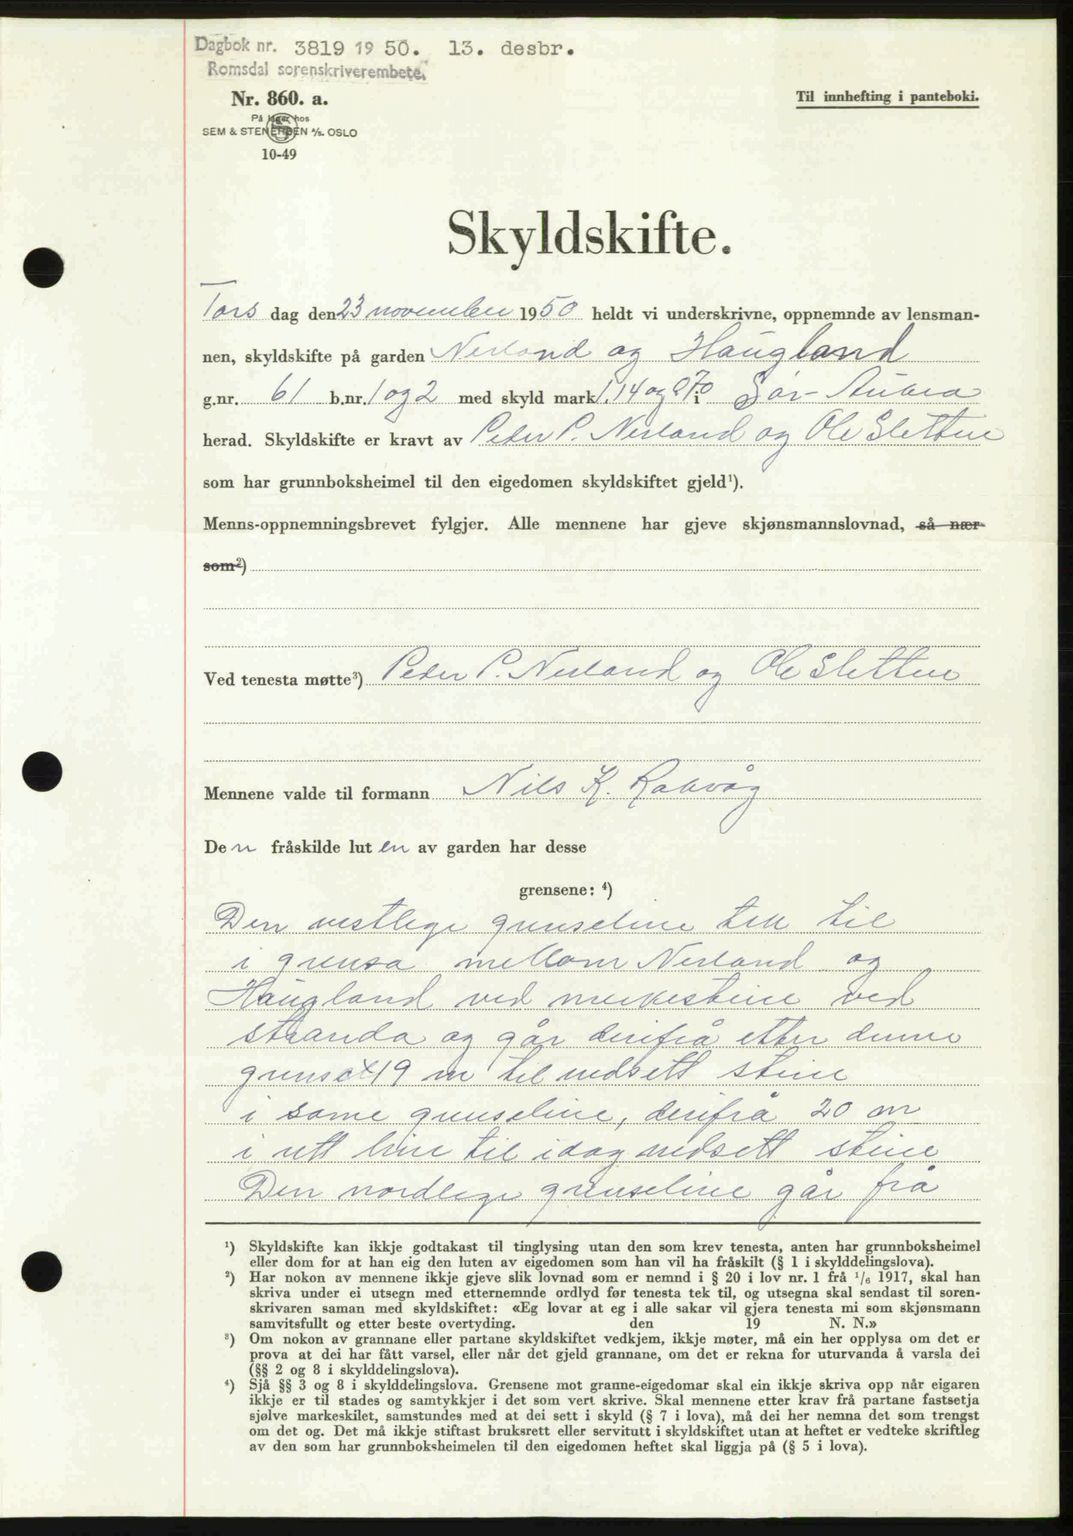 Dagbok nr. 3819 1950. 13. desbr.
Romsdal sorenskriverembete.
Nr. 860. a.
Til innhefting i panteboki.
På lager hos
SEM & STENERSEN A/S. OSLO
10-49
Skyldskifte.
Tors dag den 23 november 1950 heldt vi underskrivne, oppnemnde av lensman-
nen, skyldskifte på garden Nerland og Haugland
g.nr. 61 b.nr. 1 og 2 med skyld mark 1.14 og 0.70 i Sør-Aukra
herad. Skyldskifte er kravt av Peder P. Nerland og Ole Slettene
som har grunnboksheimel til den eigedomen skyldskiftet gjeld¹).
Menns-oppnemningsbrevet fylgjer. Alle mennene har gjeve skjønsmannslovnad, så nær
som²)
Ved tenesta møtte³) Peder P. Nerland og Ole Slettene
Mennene valde til formann Nils K. Rakvåg
Den fråskilde luten av garden har desse
grensene: ⁴)
Den vestlige grenseline tek til
i grensa mellom Nerland og
Haugland ved merkesteine ved
stranda og går derifrå etter denne
grense 19 m til nedsett steine
i same grenseline, derifrå 20 m
i rett line til idag nedsett steine
Den nordlege grenseline går frå
¹) Skyldskifte kan ikkje godtakast til tinglysing utan den som krev tenesta, anten har grunnboksheimel
eller dom for at han eig den luten av eigedomen som han vil ha fråskilt (§ 1 i skylddelingslova).
²) Har nokon av mennene ikkje gjeve slik lovnad som er nemnd i § 20 i lov nr. 1 frå 1/6 1917, skal han
skriva under ei utsegn med etternemnde ordlyd før tenesta tek til, og utsegna skal sendast til soren-
skrivaren saman med skyldskiftet: «Eg lovar at eg i alle sakar vil gjera tenesta mi som skjønsmann
samvitsfullt og etter beste overtyding. den 19 N. N.»
³) Om nokon av grannane eller partane skyldskiftet vedkjem, ikkje møter, må ein her opplysa om det er
prova at dei har fått varsel, eller når det gjeld grannane, om det er rekna for uturvanda å varsla dei
(§§ 2 og 8 i skylddelingslova).
⁴) Sjå §§ 3 og 8 i skylddelingslova. Grensene mot granne-eigedomar skal ein ikkje skriva opp når eigaren
ikkje er til stades og samtykkjer i det som vert skrive. Skal mennene etter krav frå partane fastsetja
sjølve markeskilet, samstundes med at dei sett i skyld (§ 7 i lova), må dei her nemna det som trengst
om det og. Det må ikkje stiftast bruksrett eller servitutt i skyldskiftet utan at heftet er vedteke skriftleg
av den som har grunnboksheimelen til den eigedomen heftet skal liggja på (§ 5 i lova).